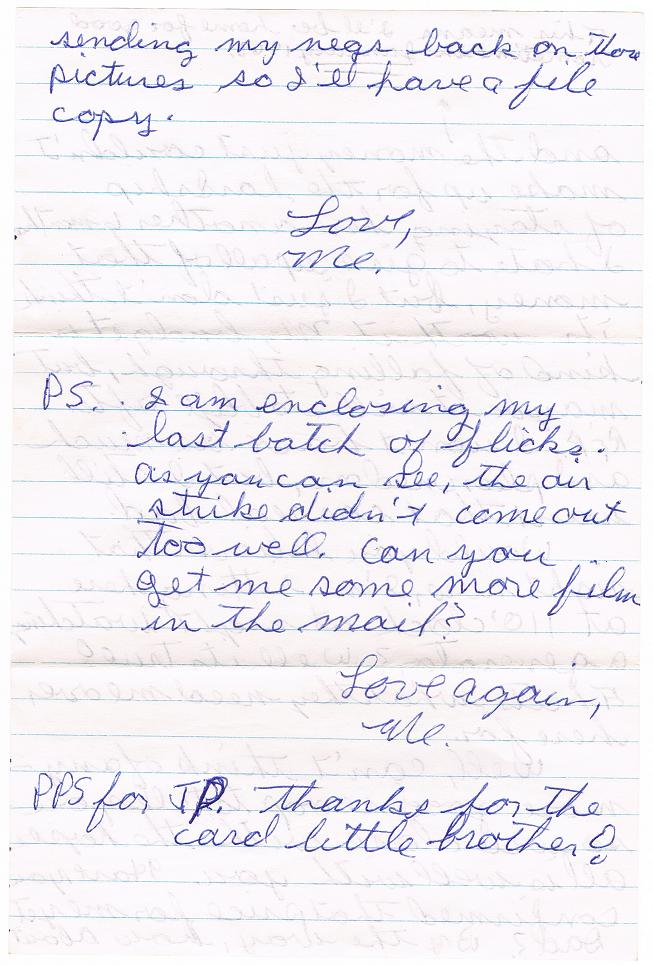 sending my negs back on those
pictures so I'll have a file
copy.
Love,
Me.
PS. I am enclosing my
last batch of flicks.
As you can see, the air
strike didn't come out
too well. Can you
get me some more film
in the mail?
Love again,
Me.
PPS for JP. Thanks for the
card little brother!